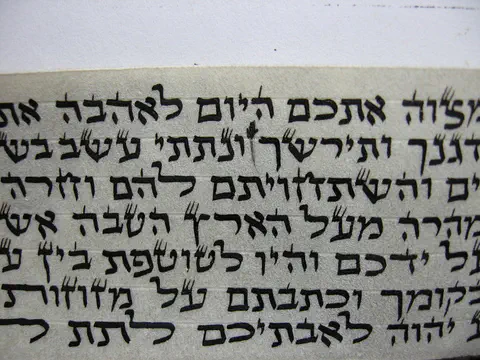 מצוה אתכם היום לאהבה את
דגנך ותירשך ונתתי עשב בש
ים והשתחויתם להם וחרה
מהרה מעל הארץ הטבה אש
על ידכם והיו לטוטפת בין ע
בקומך וכתבתם על מזוזות
ע יהוה לאבתיכם לתת ל